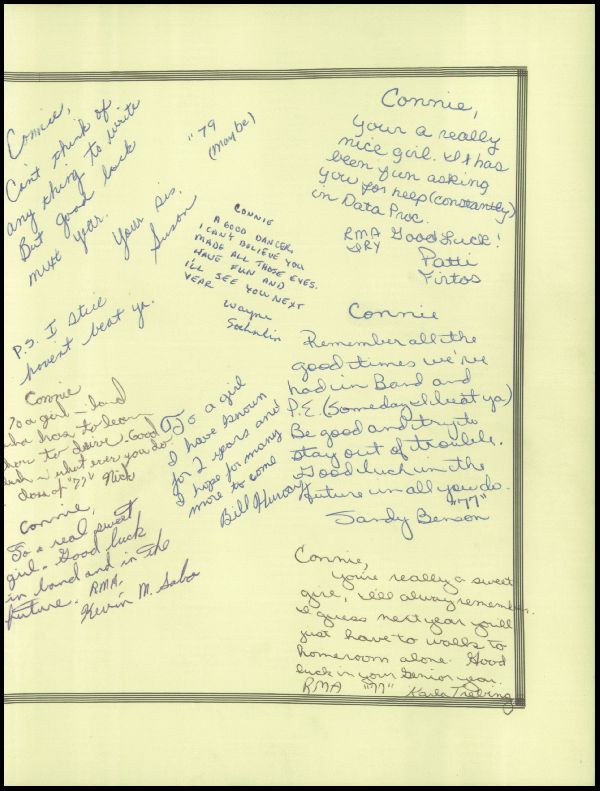 Connie,
Can't think of
any thing to write
But good luck
next year.
Your sis.
Susan
P.S. I still
havent beat ya.
"79
(maybe)
CONNIE
A GOOD DANCER,
I CAN'T BELIEVE YOU
MADE ALL THOSE EYES.
HAVE FUN AND
I'LL SEE YOU NEXT
YEAR
Wayne
Connie,
Your a really
nice girl. It has
been fun asking
you for help (constantly)
in Data Proc.
RMA Good Luck!
Patti
Connie
Remember all the
good times we've
had in Band and
P.E. (Someday I beat ya)
Be good and try to
stay out of trouble.
Good luck in the
future in all you do.
"77"
Sandy Benson
Connie
To a girl
who has to learn
how to drive. Good
luck in what ever you do.
class of "77" Nick
To a girl
I have known
for 2 years and
I hope for many
more to come
Bill
Connie,
To a real sweet
girl. Good luck
in band and in the
future. RMA.
Kevin M. Sabo
Connie,
You're really a sweet
girl, I'll always remember.
I guess next year you'll
just have to walk to
homeroom alone. Good
luck in your Senior year.
RMA "77" Karla